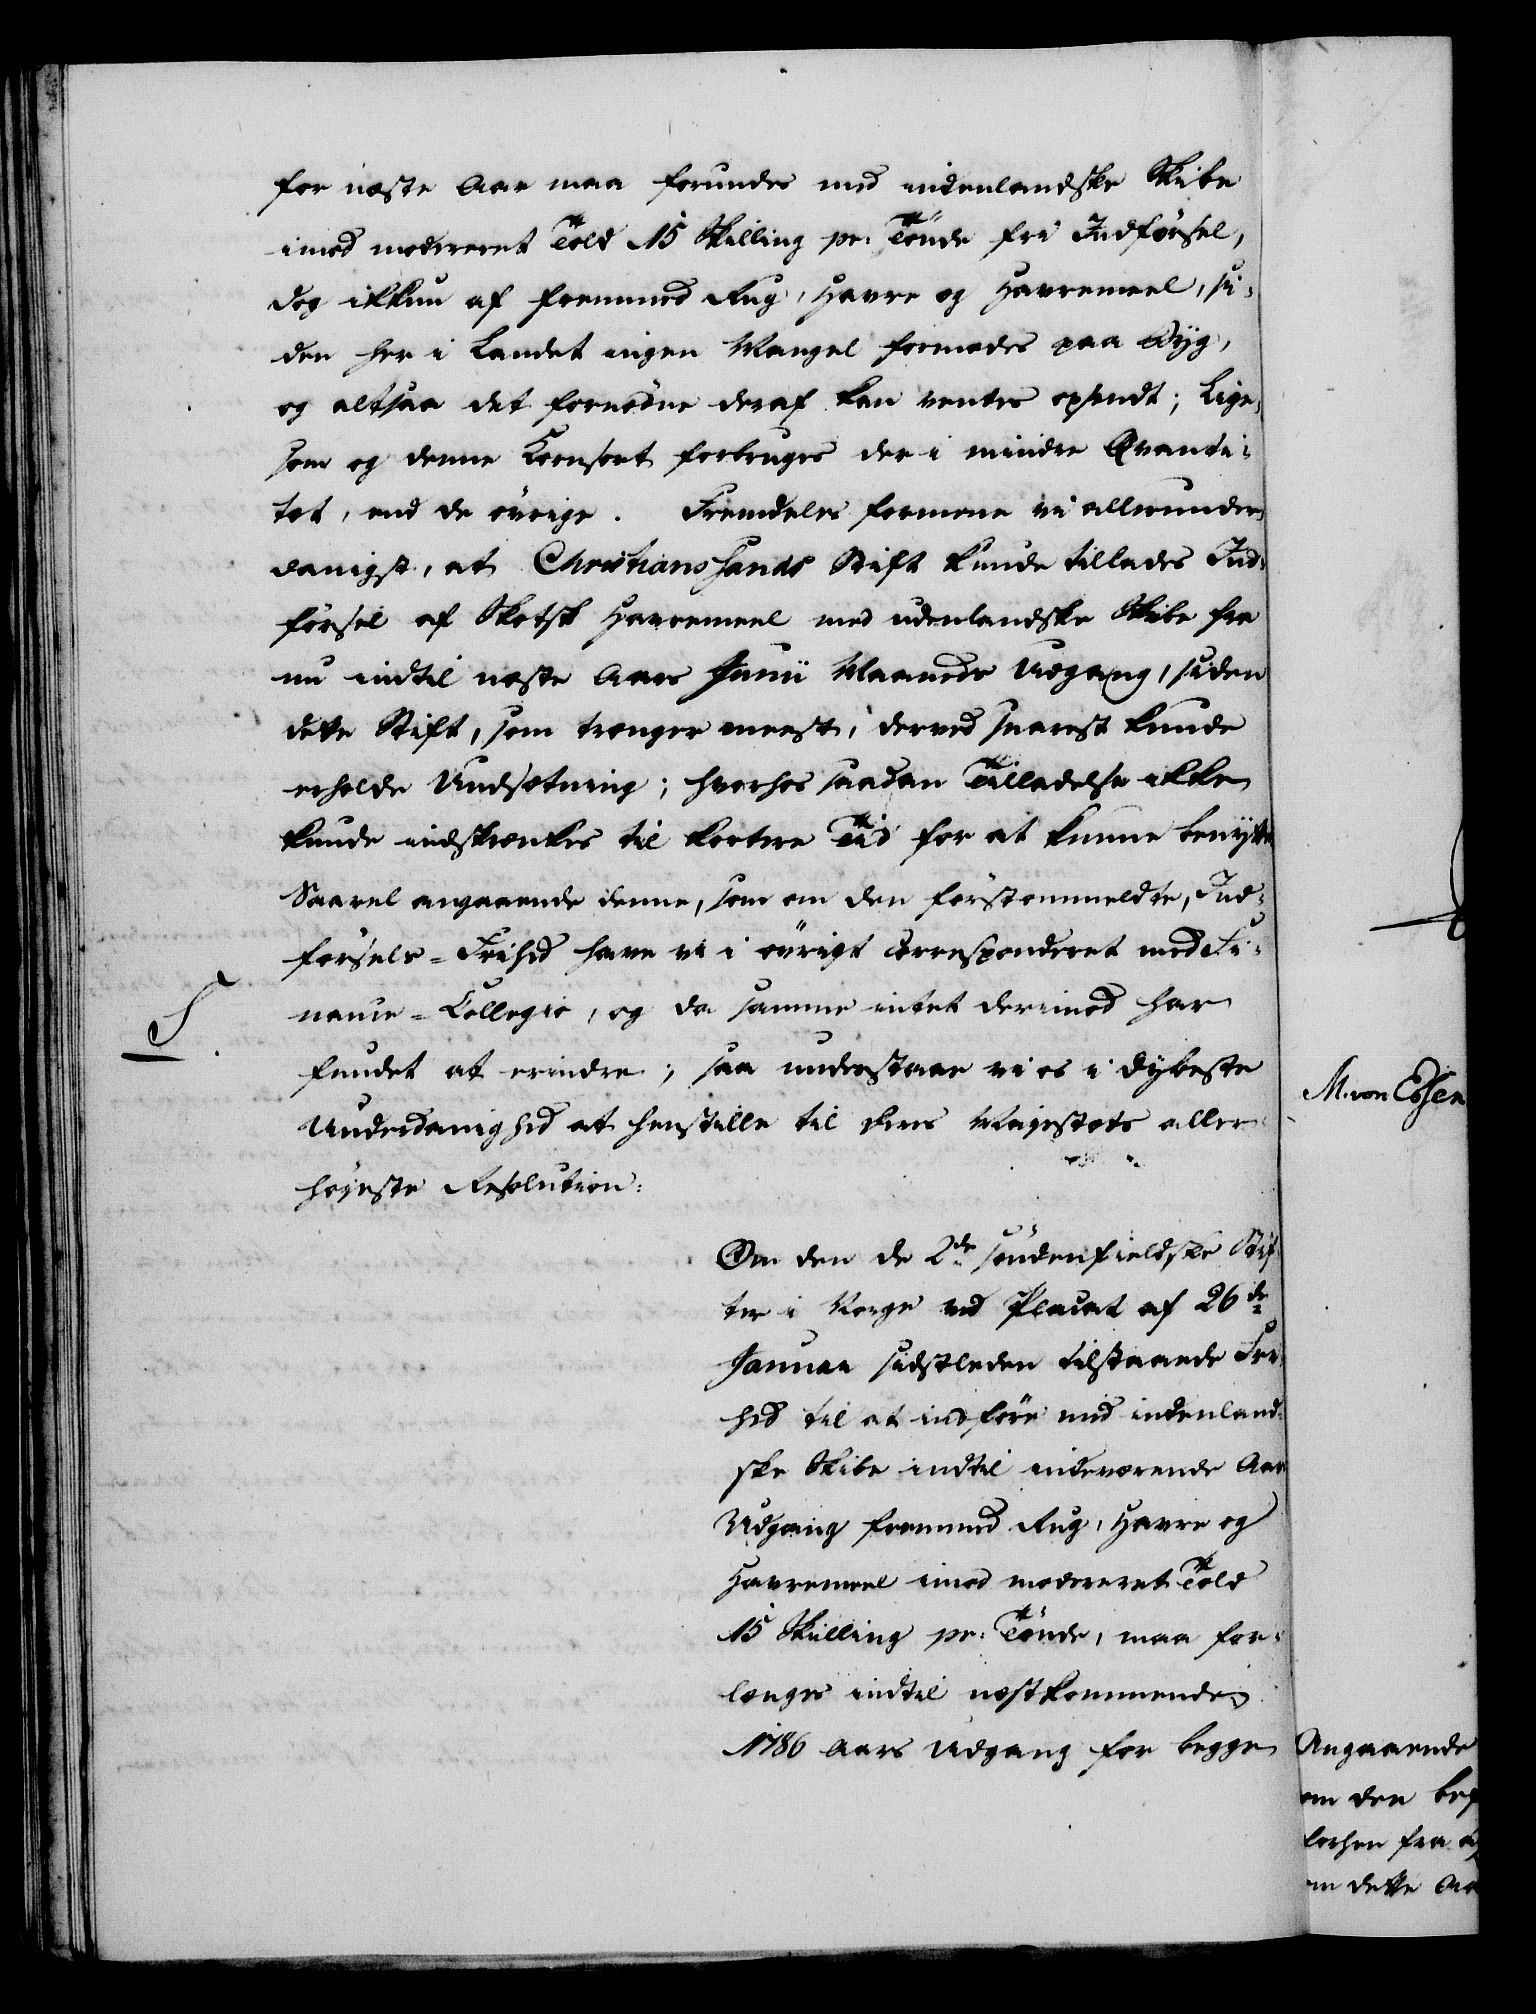 for næste Aar maa forundes med indenlandske Skibe
imod modereret Told 15 Skilling pr: Tönde fri Indförsel,
dog ikkun af fremmed Rug, Havre og Havremeel, si-
den her i Landet ingen Mangel formodes paa Byg,
og altsaa det fornödne deraf kan ventes opsendt; Lige-
som og denne Kornsort forbruges der i mindre Qvanti-
tet, end de övrige. Fremdeles formene vi allerunder-
danigst, at Christiansands Stift kunde tillades Ind-
försel af Skotsk Havremeel med udenlandske Skibe fra
nu indtil næste Aars Junii Maaneds Udgang, siden
dette Stift, som trænger meest, derved snarest kunde
erholde Undsætning; hvorhos saadan Tilladelse ikke
kunde indskrænkes til kortere Tid for at kunne benyttes
Saavel angaaende denne, som om den förstommeldte, Ind-
försels-Frihed have vi i övrigt correspondert med Fi-
nance-Collegio, og da samme intet derimod har
fundet at erindre; saa understaae vi os i dybeste
Underdanighed at henstille til Deres Majestæts aller-
höyeste Resolution:
Om den de 2de söndenfieldske Stif-
ter i Norge ved Placat af 26de
Januar sidstleden tilstaaede Fri-
hed til at indföre med indenland-
ske Skibe indtil indeværende Aars
Udgang fremmed Rug, Havre og
Havremeel imod modereret Told
15 Skilling pr: Tönde, maa for-
længes indtil næstkommende
1786 Aars Udgang for begge
S.
M. von Essen
Angaaende
om den
fra
om dette